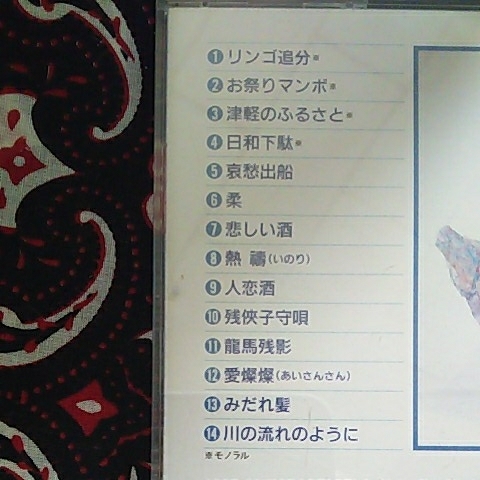 ❶リンゴ追分※
❷お祭りマンボ※
❸津軽のふるさと※
❹日和下駄※
❺哀愁出船
❻柔
❼悲しい酒
❽熱 禱(いのり)
❾人恋酒
❿残俠子守唄
⓫龍馬残影
⓬愛燦燦(あいさんさん)
⓭みだれ髪
⓮川の流れのように
※モノラル